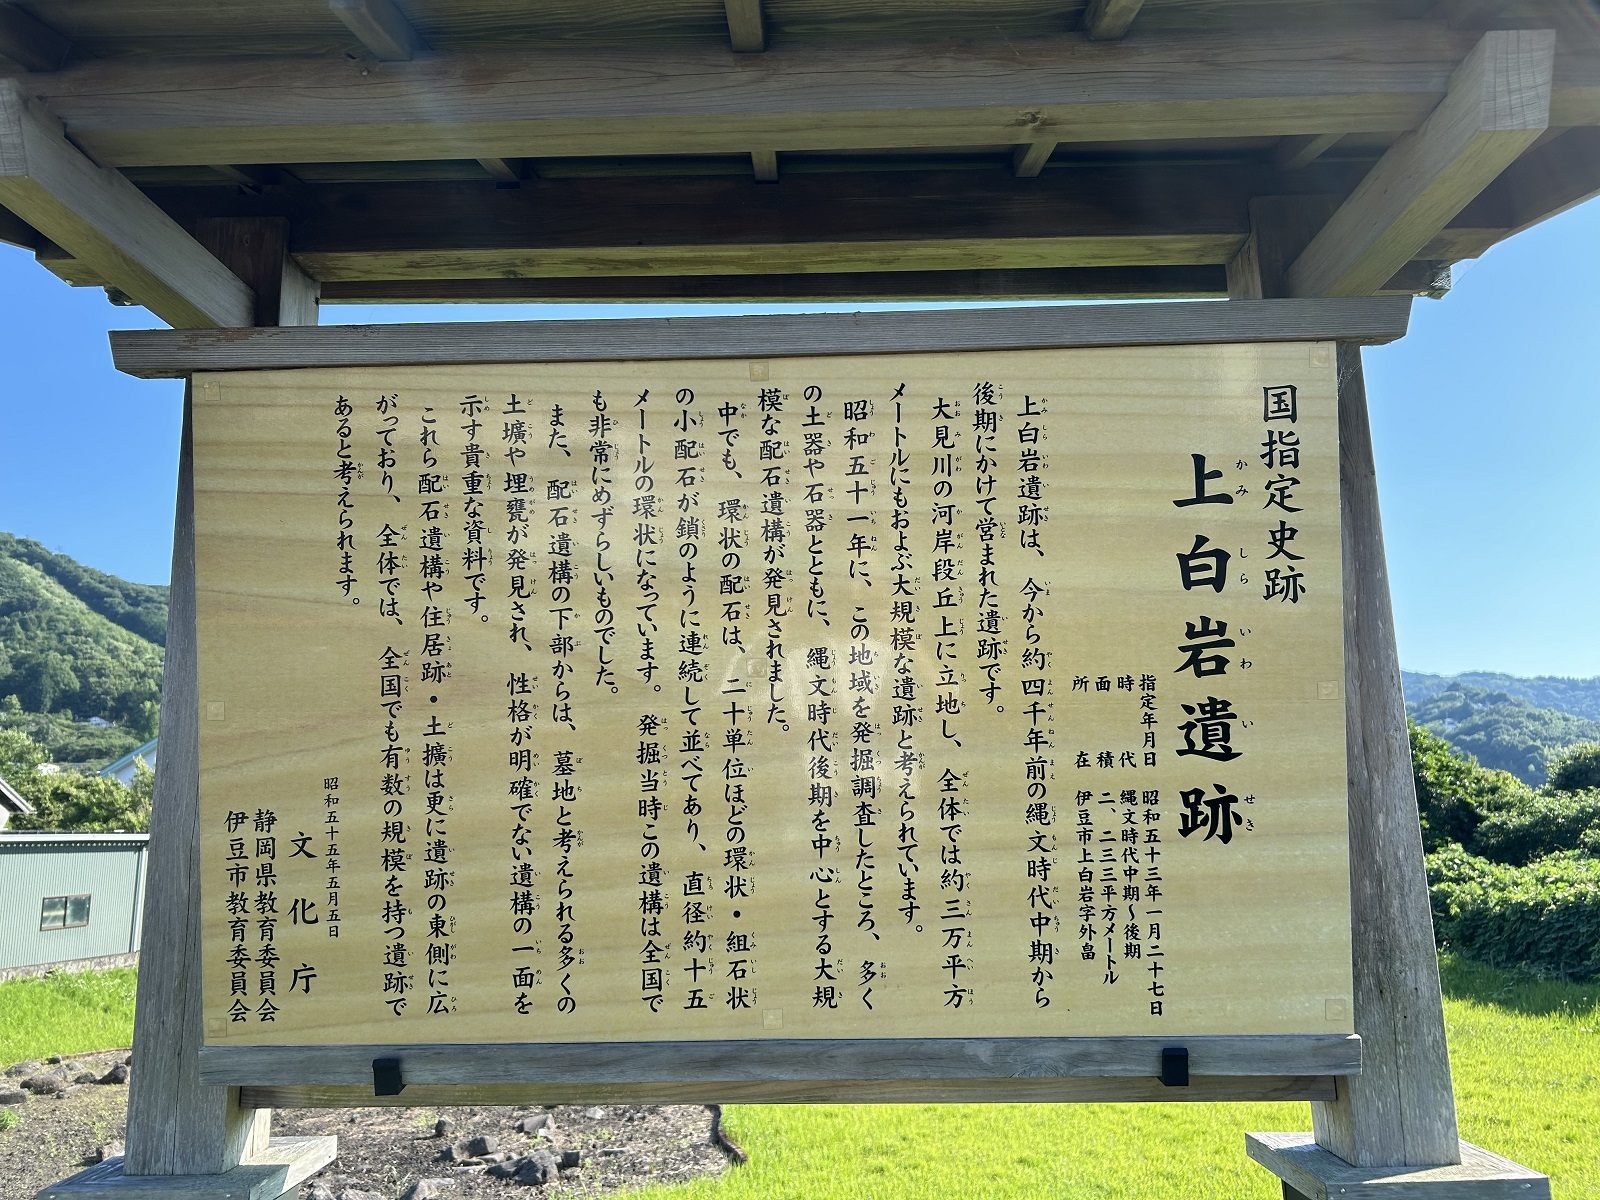 国指定史跡
上白岩遺跡
かみしらいわいせき
指定年月日 昭和五十三年一月二十七日
時代 縄文時代中期～後期
面積 二、二三三平方メートル
所在 伊豆市上白岩字外畠
上白岩遺跡は、今から約四千年前の縄文時代中期から
後期にかけて営まれた遺跡です。
大見川の河岸段丘上に立地し、全体では約三万平方
メートルにもおよぶ大規模な遺跡と考えられています。
昭和五十一年に、この地域を発掘調査したところ、多く
の土器や石器とともに、縄文時代後期を中心とする大規
模な配石遺構が発見されました。
中でも、環状の配石は、二十単位ほどの環状・組石状
の小配石が鎖のように連続して並べてあり、直径約十五
メートルの環状になっています。発掘当時この遺構は全国で
も非常にめずらしいものでした。
また、配石遺構の下部からは、墓地と考えられる多くの
土壙や埋甕が発見され、性格が明確でない遺構の一面を
示す貴重な資料です。
これら配石遺構や住居跡・土擴は更に遺跡の東側に広
がっており、全体では、全国でも有数の規模を持つ遺跡で
あると考えられます。
昭和五十五年五月五日
文化庁
静岡県教育委員会
伊豆市教育委員会